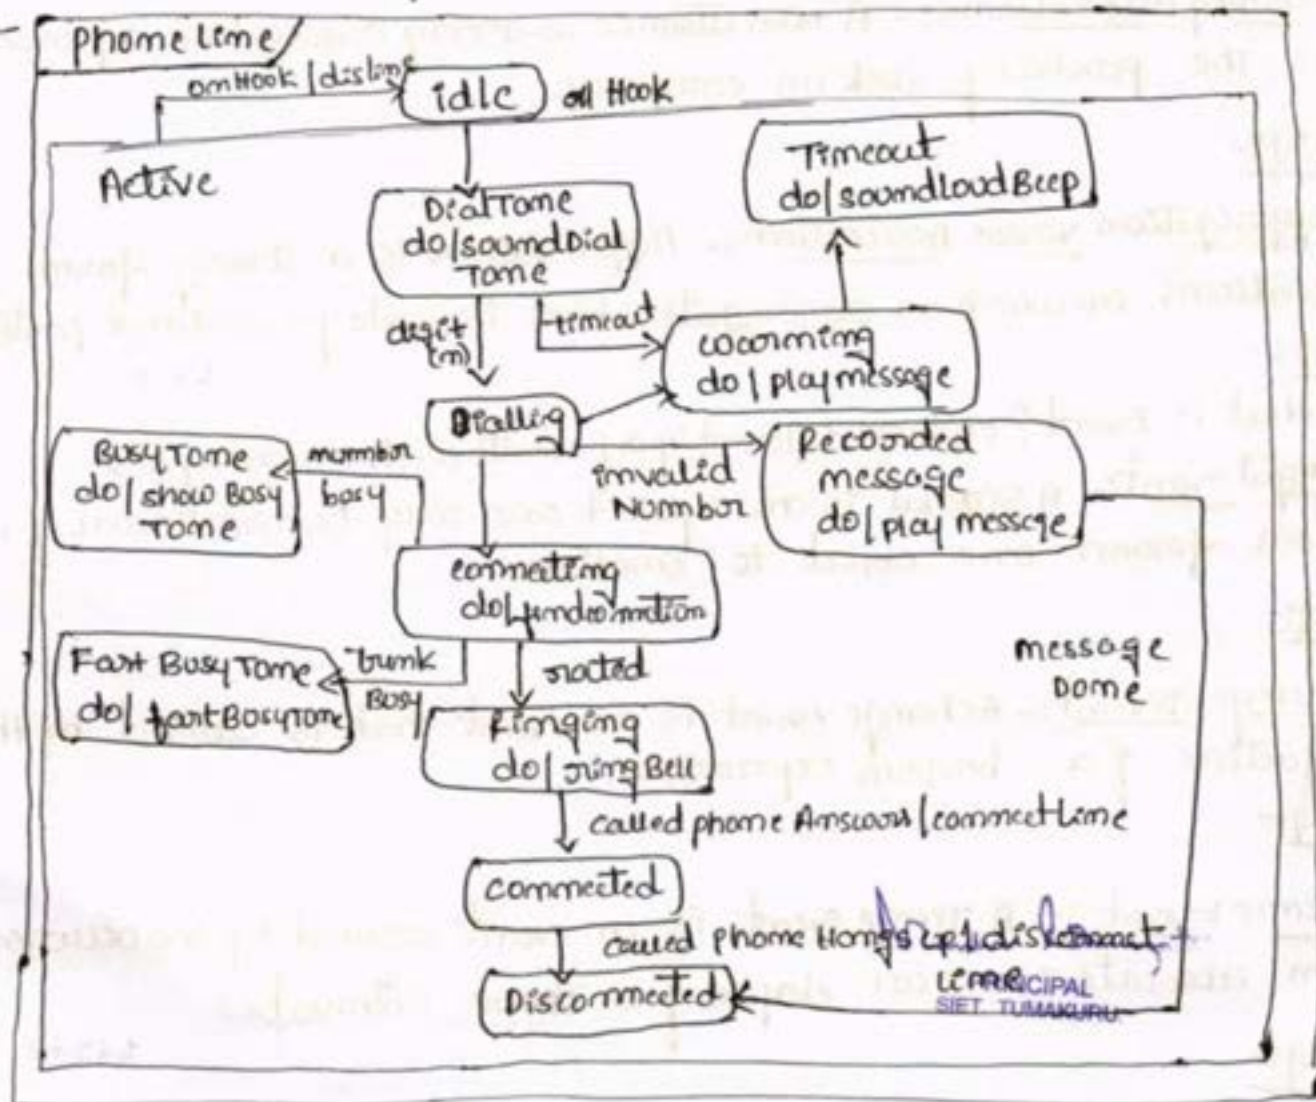 phone line
onHook / disline
idle
off Hook
Active
Timeout
do/soundLoudBeep
DialTone
do/soundDial
Tone
digit
(n)
timeout
warning
do / play message
Dialling
BusyTone
do/ show Busy
Tone
number
busy
invalid
Number
Recorded
message
do/ play message
connecting
do/
Fast Busy Tone
do/ fastBusyTone
trunk
Busy
routed
message
Done
Ringing
do/ ringBell
called phone Answers / connect line
connected
called phone Hangs up / disconnect
line
PRINCIPAL
SIET. TUMAKURU.
Disconnected